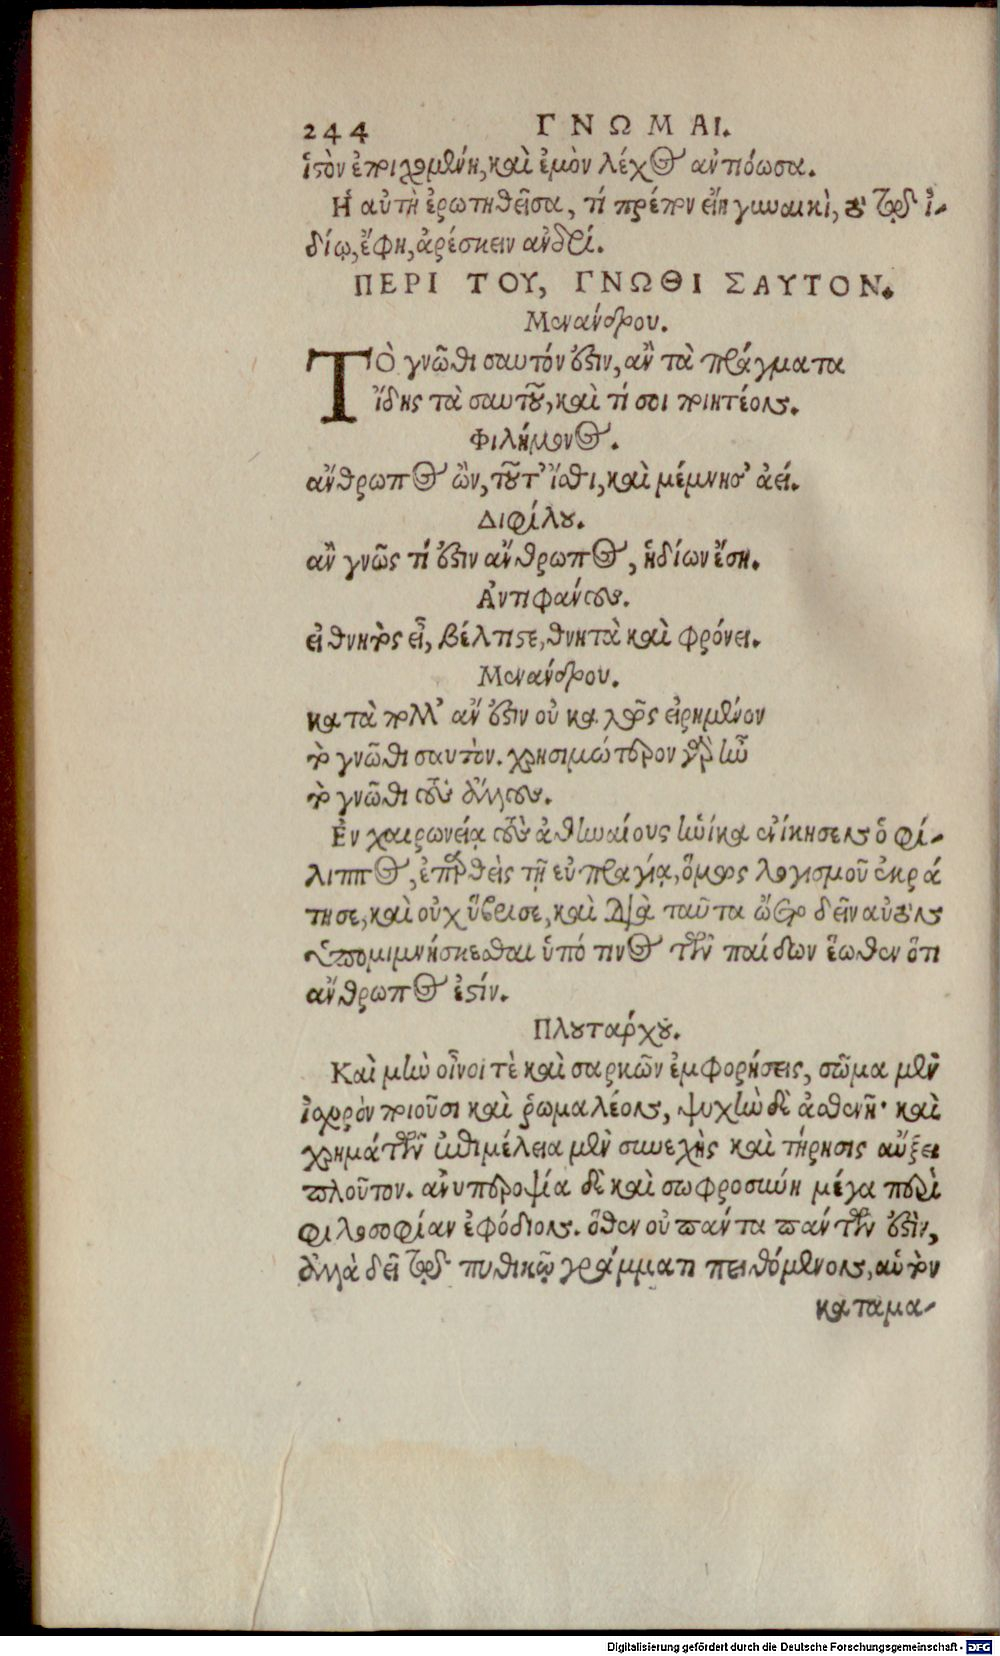 244 ΓΝΩΜΑΙ.
ἱστὸν ἐποιχομένη, καὶ ἐμὸν λέχος ἀντιόωσα.
Ἡ αὐτὴ ἐρωτηθεῖσα, τί πρέπον εἴη γυναικὶ, τὸ τῷ ἰ-
δίῳ, ἔφη, ἀρέσκειν ἀνδρί.
ΠΕΡΙ ΤΟΥ, ΓΝΩΘΙ ΣΑΥΤΟΝ.
Μενάνδρου.
ΤΟ γνῶθι σαυτόν ἐστιν, ἂν τὰ πράγματα
ἴδης τὰ σαυτοῦ, καὶ τί σοι ποιητέον.
Φιλήμονος.
ἄνθρωπος ὢν, τοῦτ' ἴσθι, καὶ μέμνησ' ἀεί.
Διφίλου.
ἂν γνῶς τί ἐστιν ἄνθρωπος, ἡδίων ἔση.
Ἀντιφάνους.
εἰ θνητὸς εἶ, βέλτιστε, θνητὰ καὶ φρόνει.
Μενάνδρου.
κατὰ πολλ' ἄν ἐστιν οὐ καλῶς εἰρημένον
τὸ γνῶθι σαυτὸν. χρησιμώτερον γὰρ ἦν
τὸ γνῶθι τοὺς ἄλλους.
Ἐν χαιρωνείᾳ τοὺς ἀθηναίους ἡνίκα ἐνίκησεν ὁ φί-
λιππος, ἐπαρθεὶς τῇ εὐπραγίᾳ, ὅμως λογισμοῦ ἐκρά
τησε, καὶ οὐχ ὕβρισε, καὶ διὰ ταῦτα ᾤετο δεῖν αὐτὸν
ὑπομιμνήσκεσθαι ὑπό τινος τῶν παίδων ἕωθεν ὅτι
ἄνθρωπος ἐστίν.
Πλουτάρχου.
Καὶ μὴν οἶνοί τὲ καὶ σαρκῶν ἐμφορήσεις, σῶμα μὲν
ἰσχυρὸν ποιοῦσι καὶ ῥωμαλέον, ψυχὴν δὲ ἀσθενῆ· καὶ
χρημάτων ἐπιμέλεια μὲν συνεχὴς καὶ τήρησις αὔξει
πλοῦτον. ἀνυπεροψία δὲ καὶ σωφροσύνη μέγα περὶ
φιλοσοφίαν ἐφόδιον. ὅθεν οὐ πάντα πάντων ἐστὶν,
ἀλλὰ δεῖ τῷ πυθικῷ γράμματι πειθόμενον, αὑτὸν
καταμα-
Digitalisierung gefördert durch die Deutsche Forschungsgemeinschaft - DFG